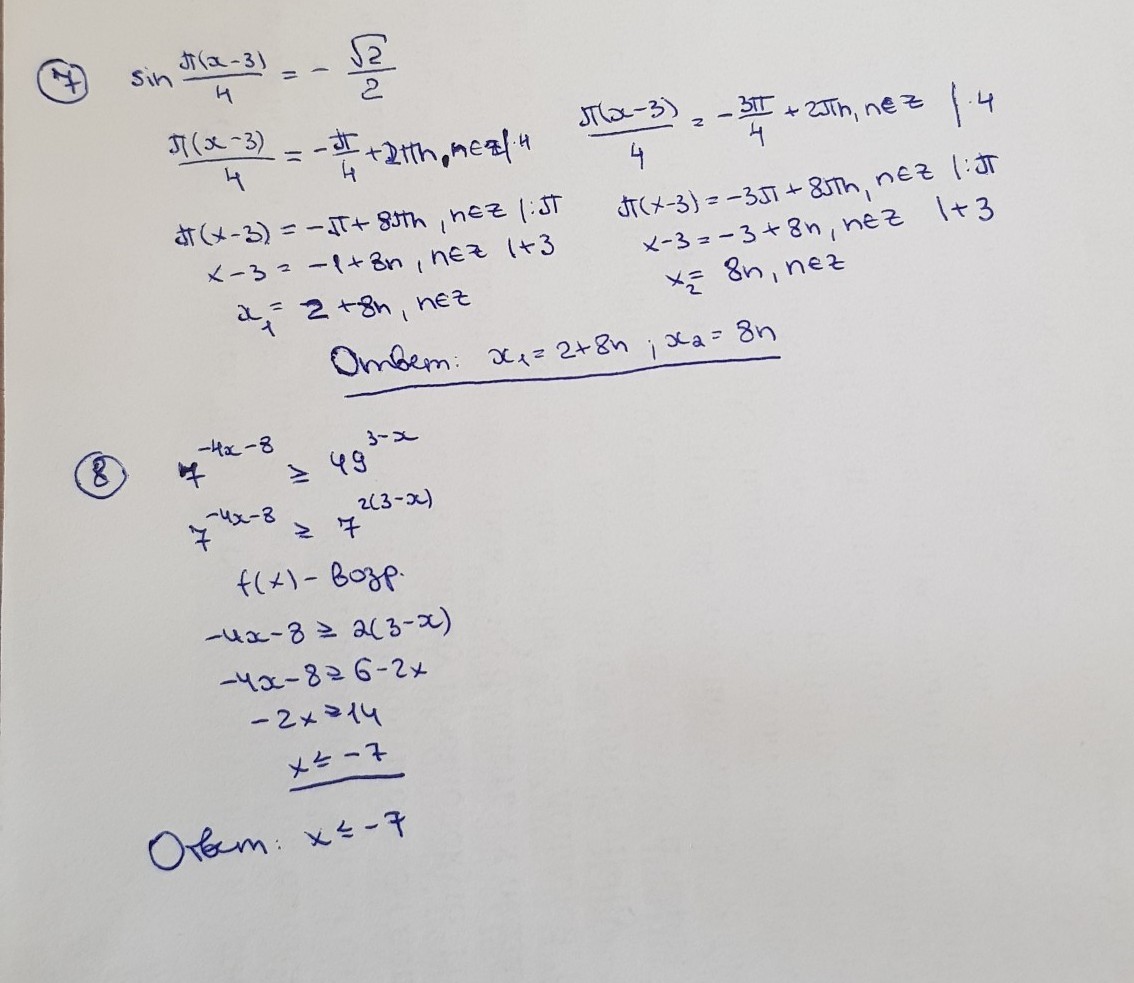 7 sin π(x-3)/4 = - √2/2
π(x-3)/4 = -π/4 + 2πn, n∈z |·4
π(x-3)/4 = -3π/4 + 2πn, n∈z |·4
π(x-3) = -π + 8πn, n∈z |:π
π(x-3) = -3π + 8πn, n∈z |:π
x-3 = -1+8n, n∈z |+3
x-3 = -3+8n, n∈z |+3
x₁ = 2+8n, n∈z
x₂ = 8n, n∈z
Ответ: x₁ = 2+8n ; x₂ = 8n
8 7^(-4x-8) ≥ 49^(3-x)
7^(-4x-8) ≥ 7^(2(3-x))
f(x) - возр.
-4x-8 ≥ 2(3-x)
-4x-8 ≥ 6-2x
-2x ≥ 14
x ≤ -7
Ответ: x ≤ -7